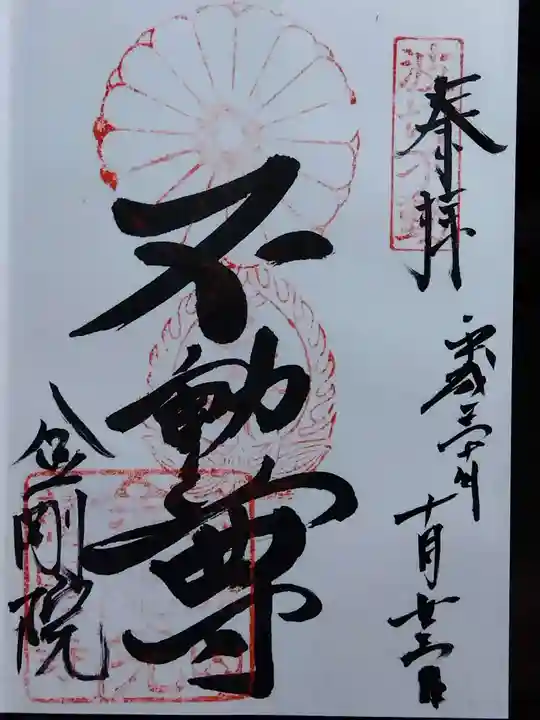 奉拝
平成三十年
十月廿三日
不動尊
金剛院